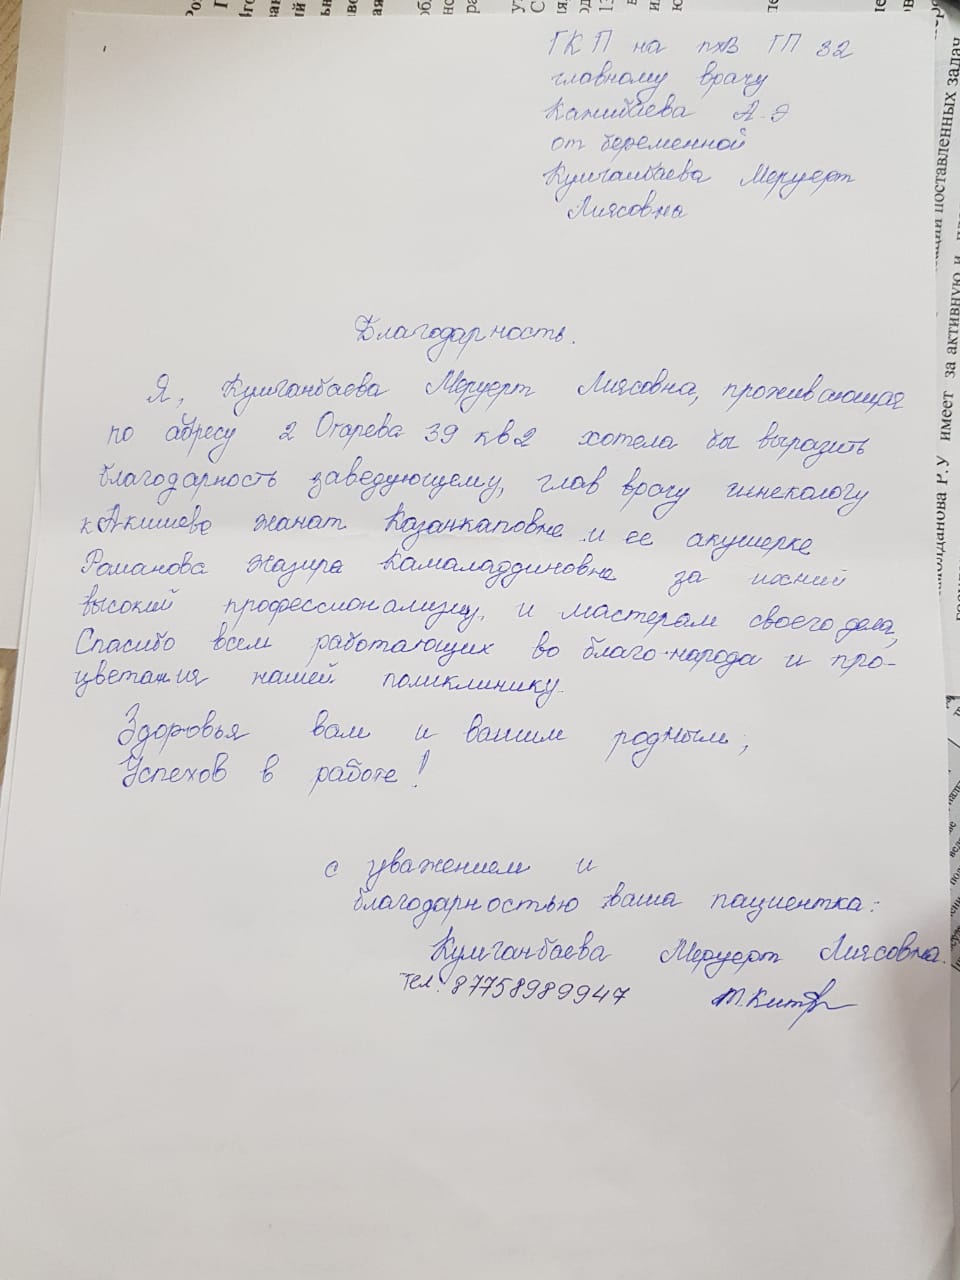 ГКП на пхв ГП 32
главному врачу
Канибаева А.Э
от беременной
Кумганбаева Меруерт
Лиясовна
Благодарность.
Я, Кумганбаева Меруерт Лиясовна, проживающая
по адресу 2 Огарева 39 кв2 хотела бы выразить
благодарность заведующему, глав врачу гинекологу
к Акишево Жанат Казанкаповне и ее акушерке
Романова Назира Камаладдиновне за ихний
высокий профессионализму, и мастерам своего дела,
Спасибо всем работающих во благо народа и про-
цветания нашей поликлинику.
Здоровья вам и вашим родным,
Успехов в работе!
с уважением и
благодарностью ваша пациентка:
Кумганбаева Меруерт Лиясовна.
тел: 87758989947
имеет за активную и
поставленных задач